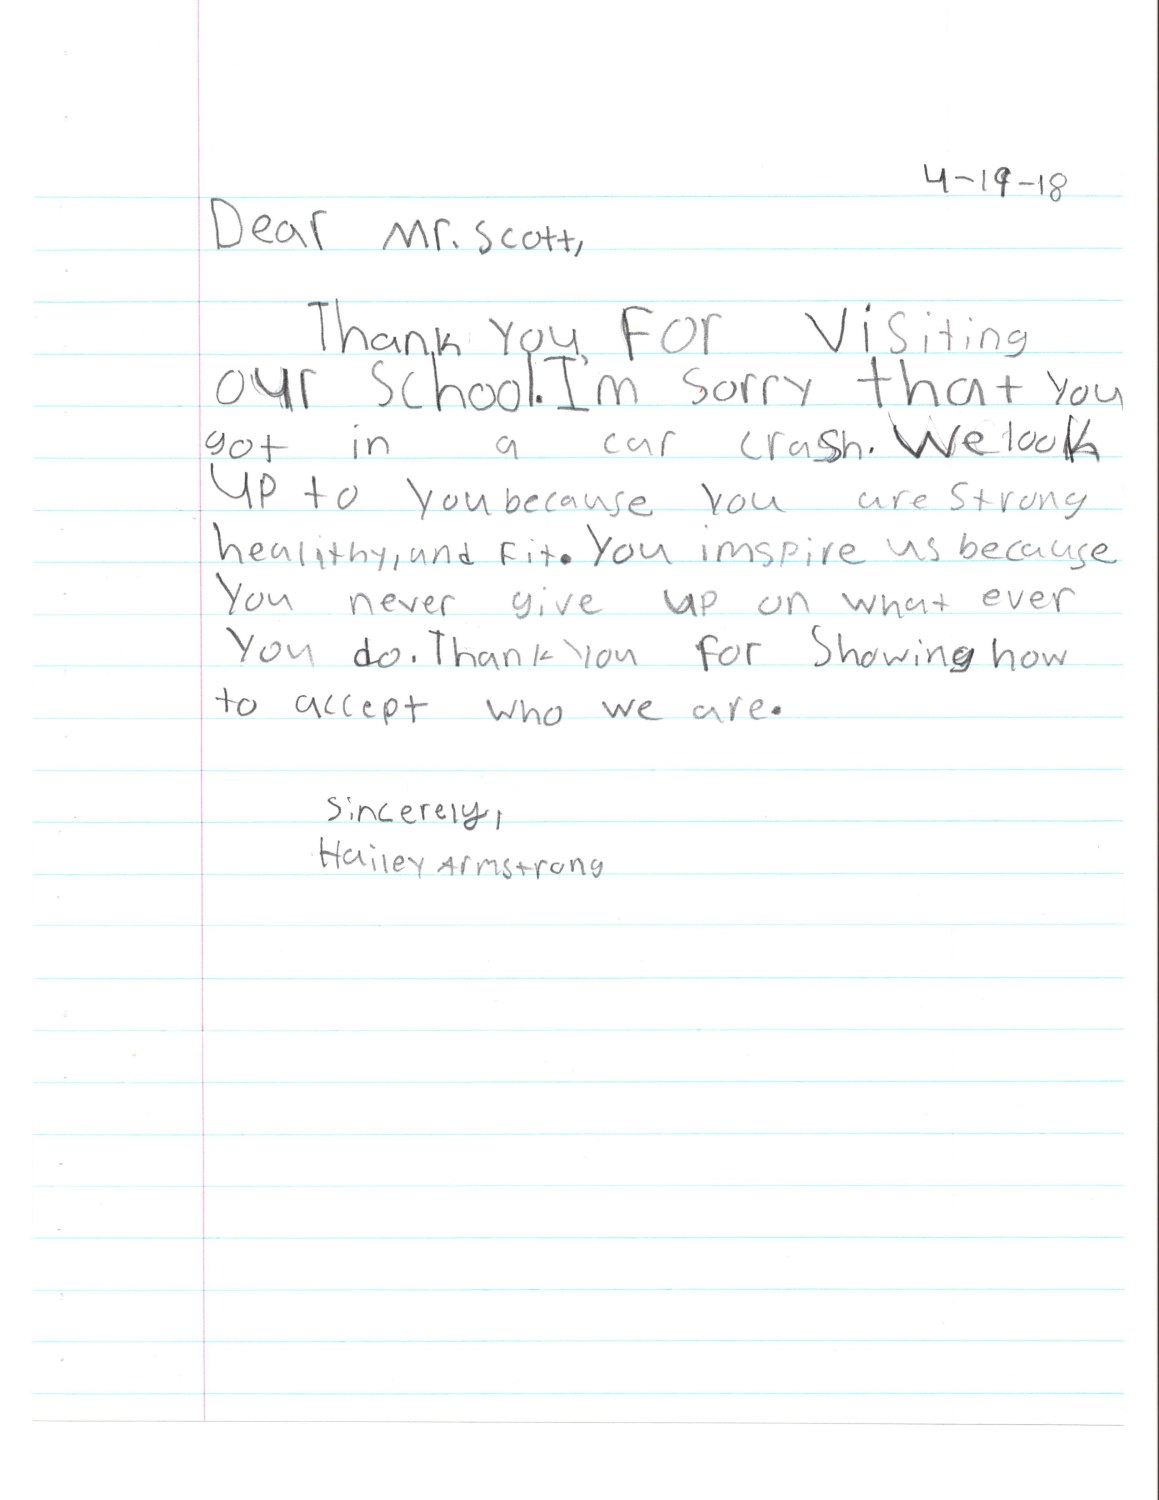 4-19-18
Dear Mr. Scott,
Thank you for visiting
our school. I'm sorry that you
got in a car crash. We look
up to you because you are strong
healithy, and fit. You imspire us because
You never give up on what ever
You do. Thank you for showing how
to accept who we are.
Sincerely,
Hailey Armstrong